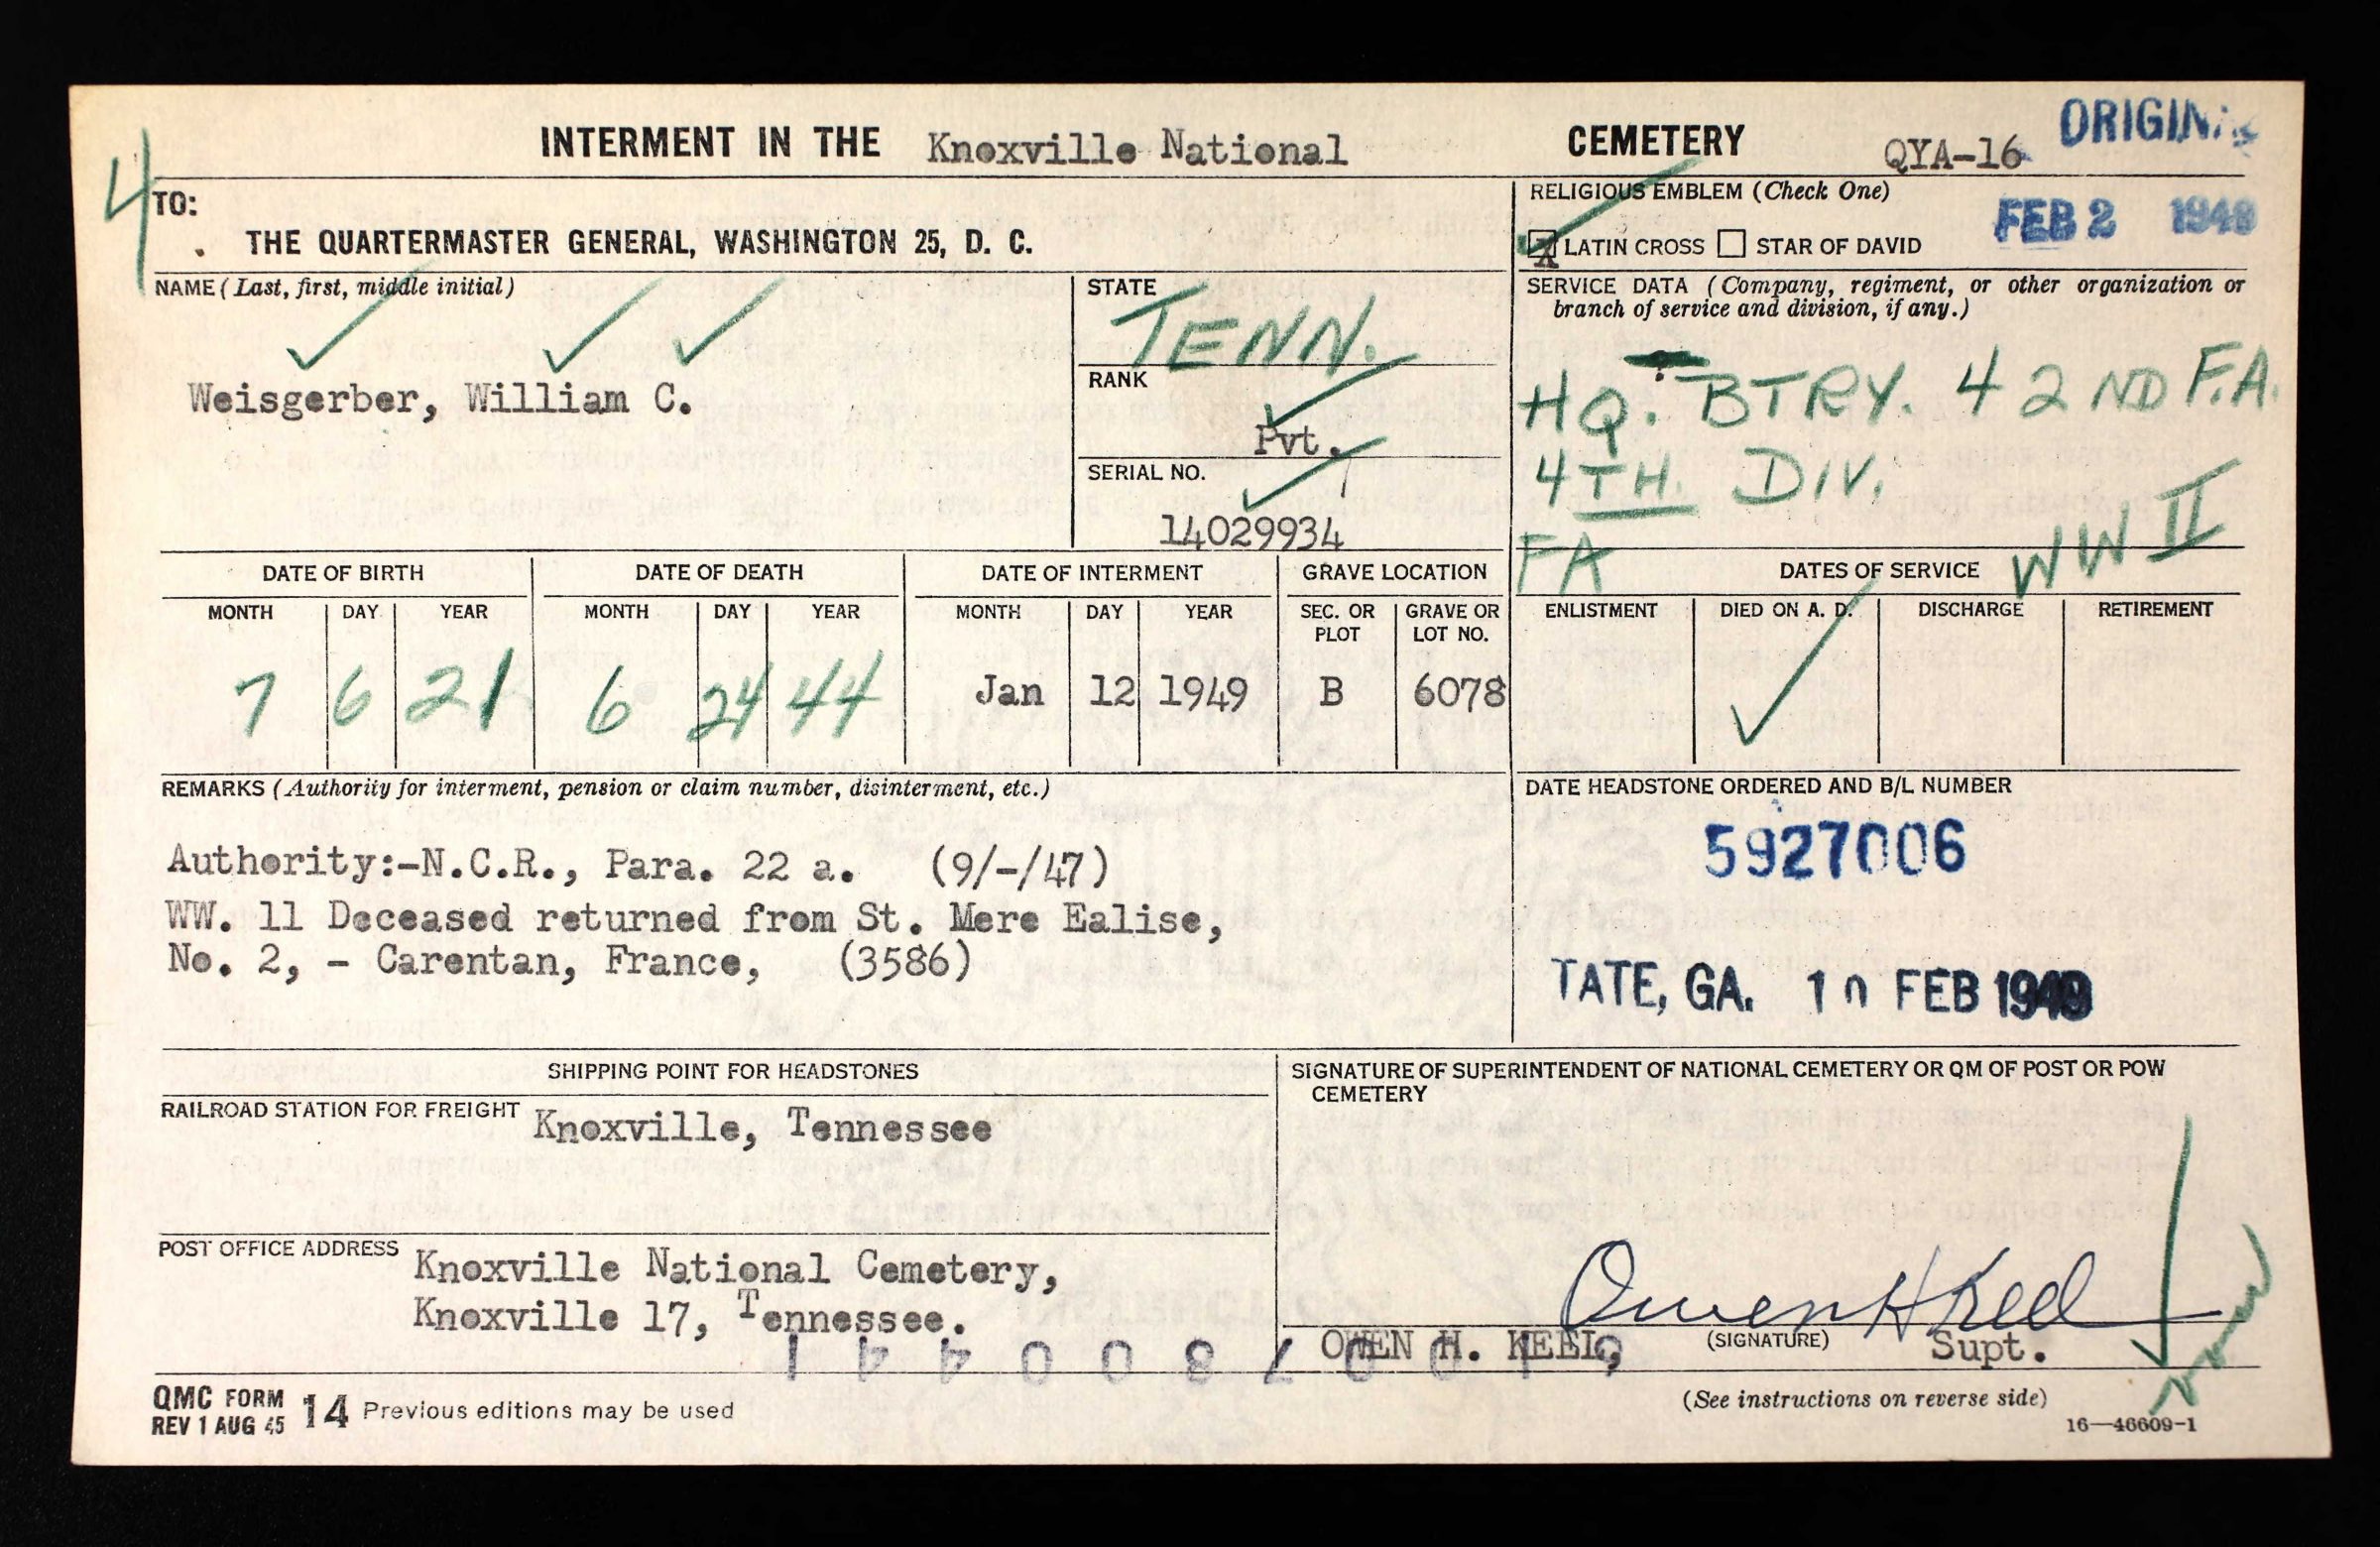 INTERMENT IN THE Knoxville National CEMETERY QYA-16
4
FEB 2 1949
TO:
. THE QUARTERMASTER GENERAL, WASHINGTON 25, D. C.
RELIGIOUS EMBLEM (Check One)
X LATIN CROSS STAR OF DAVID
NAME (Last, first, middle initial)
Weisgerber, William C.
STATE
TENN.
RANK
Pvt.
SERIAL NO.
14029934
SERVICE DATA (Company, regiment, or other organization or
branch of service and division, if any.)
HQ. BTRY. 42ND F.A.
4TH. DIV.
FA
WW II
DATE OF BIRTH DATE OF DEATH DATE OF INTERMENT GRAVE LOCATION
MONTH DAY YEAR MONTH DAY YEAR MONTH DAY YEAR SEC. OR PLOT GRAVE OR LOT NO.
7 6 21 6 24 44 Jan 12 1949 B 6078
DATES OF SERVICE
ENLISTMENT DIED ON A. D. DISCHARGE RETIREMENT
REMARKS (Authority for interment, pension or claim number, disinterment, etc.)
Authority:-N.C.R., Para. 22 a. (9/-/47)
WW. 11 Deceased returned from St. Mere Ealise,
No. 2, - Carentan, France, (3586)
DATE HEADSTONE ORDERED AND B/L NUMBER
5927006
TATE, GA. 10 FEB 1949
SHIPPING POINT FOR HEADSTONES
RAILROAD STATION FOR FREIGHT Knoxville, Tennessee
POST OFFICE ADDRESS Knoxville National Cemetery,
Knoxville 17, Tennessee.
SIGNATURE OF SUPERINTENDENT OF NATIONAL CEMETERY OR QM OF POST OR POW
CEMETERY
Owen H Keel
OWEN H. KEEL, (SIGNATURE) Supt.
QMC FORM 14 Previous editions may be used
REV 1 AUG 45
(See instructions on reverse side)
16—46609-1